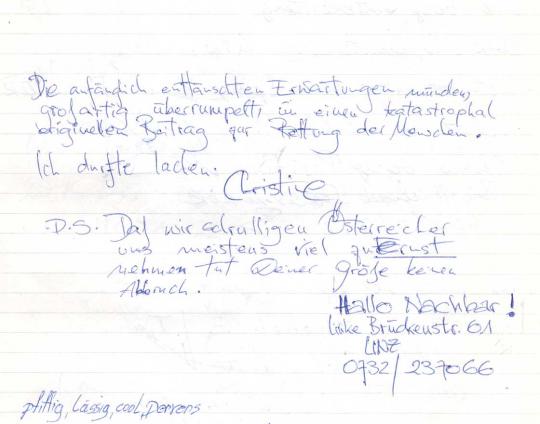 Die anfänglich enttäuschten Erwartungen münden,
großartig überrumpelt, in einen katastrophal
originellen Beitrag zur Rettung der Menschen.
Ich durfte lachen.
Christine
P.S. Daß wir schrulligen Österreicher
uns meistens viel zu Ernst
nehmen tut Deiner Größe keinen
Abbruch.
Hallo Nachbar!
linke Brückenstr. 61
LINZ
0732/237066
pfiffig, lässig, cool,